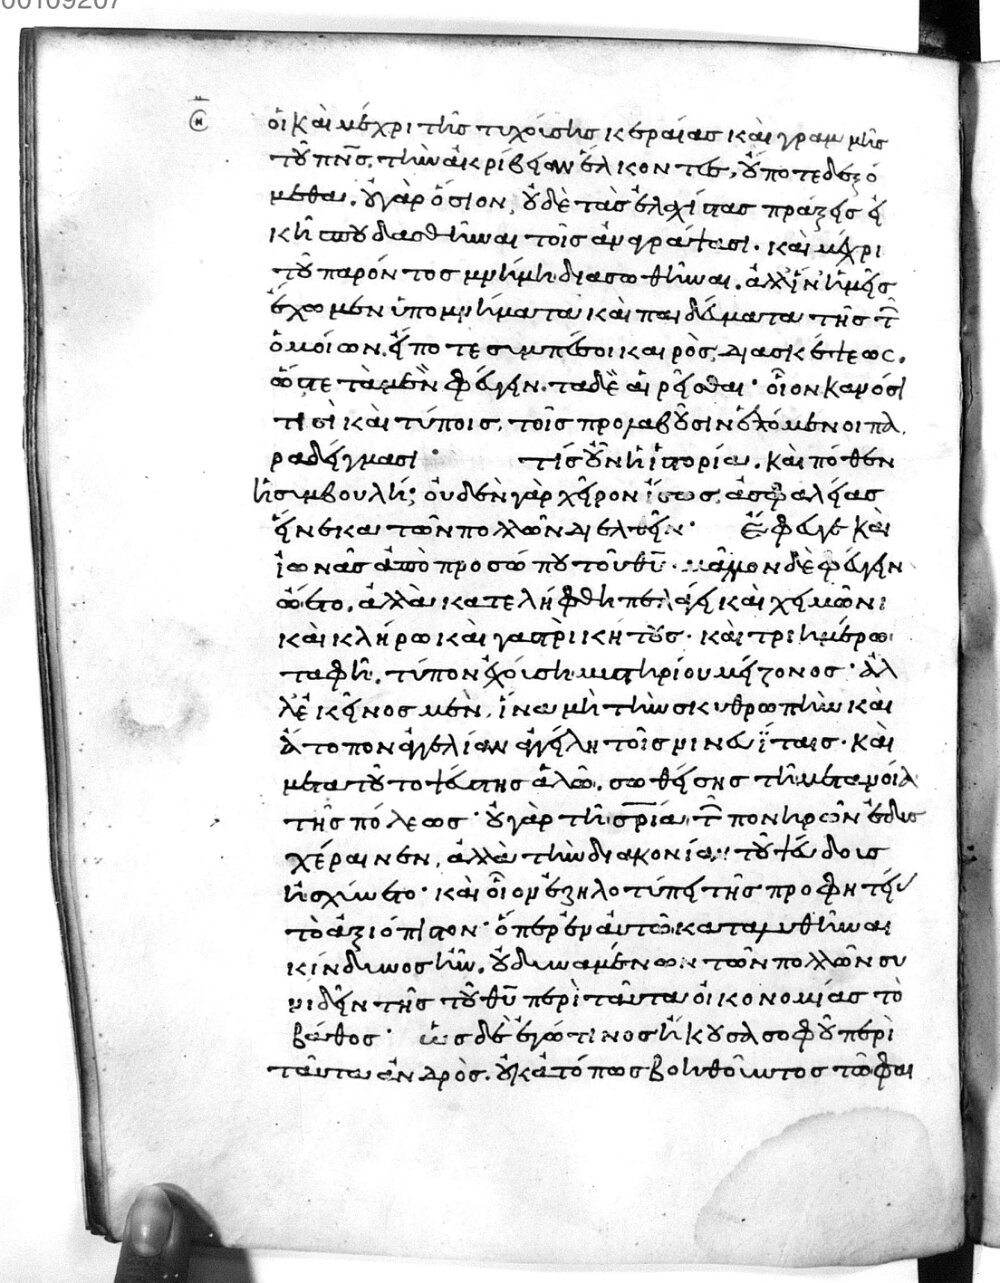 00109207
οἱ καὶ μέχρι τῆς τυχούσης κεραίας καὶ γραμμῆς
τοῦ πνς, τὴν ἀκρίβειαν ἕλκοντες, οὔποτε δεξό
μεθα. οὐ γὰρ ὅσιον, οὐδὲ τὰς ἐλαχίστας πράξεις εἰ
κῆ σπουδασθῆναι τοῖς ἀναγράψασι. καὶ μέχρι
τοῦ παρόντος μνήμη διασωθῆναι. ἀλλ' ἵν' ἡμεῖς
ἔχωμεν ὑπομνήματα καὶ παιδεύματα τῆς τ
ὁμοίων, εἴ ποτε συμπέσοι καιρὸς, διασκέψεως.
ὥστε τὰ μὲν φεύγειν. τὰ δὲ αἱρεῖσθαι· οἷον κανόσι
τισὶ καὶ τύποις, τοῖς προλαβοῦσιν ἑπόμενοι πα
ραδείγμασι· τίς οὖν ἡ ἱστορία. καὶ πόθεν
ἡ συμβουλή; οὐδὲν γὰρ χεῖρον ἴσως, ἀσφαλείας
ἕνεκα τῶν πολλῶν διελθεῖν· ἔφευγε καὶ
ἰωνᾶς ἀπὸ προσώπου τοῦ θυ. μᾶλλον δὲ φεύγειν
ᾤετο. ἀλλὰ κατελήφθη πελάγει καὶ χειμῶνι
καὶ κλήρω καὶ γαστρὶ κήτους. καὶ τριημέρω
ταφῆ, τύπον ἐχούση μυστηρίου μείζονος· ἀλ
λ' ἐκεῖνος μὲν, ἵνα μὴ τὴν σκυθρωπὴν καὶ
ἄτοπον ἀγγελίαν ἀγγείλη τοῖς νινευΐταις· καὶ
μετὰ τοῦτο ψεύστης ἁλῶ, σωθείσης τῆ μετανοία
τῆς πόλεως· οὐ γὰρ τῆ σρία τ πονηρῶν ἐδυς
χέραινεν, ἀλλὰ τὴν διακονία τοῦ ψεύδους
ἠσχύνετο· καὶ οἷον ἐζηλοτύπει τῆς προφητεί
τὸ ἀξιόπιστον· ὅπερ ἐν αὐτῶ καταλυθῆναι
κίνδυνος ἦν. οὐ δυναμένων τῶν πολλῶν συ
νιδεῖν τῆς τοῦ θυ περὶ ταῦτα οἰκονομίας τὸ
βάθος· ὡς δὲ ἐγώ τινος ἤκουσα σοφοῦ περὶ
ταῦτα ἀνδρὸς. οὐκ ἀτόπως βοηθοῦντος τῶ φαι